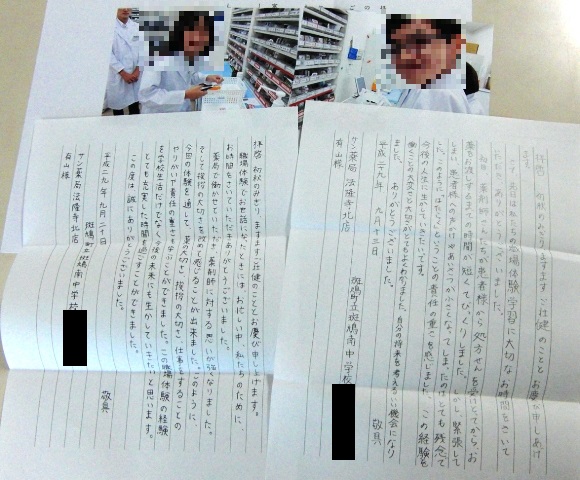 拝啓 初秋のみぎり、ますますご壮健のこととお慶び申しあげ
ます。
先日は私たちの職場体験学習に大切なお時間をさいて
いただき、ありがとうございました。
薬をお渡しするまでの時間が短くてびっくりしました。しかし、緊張して
しまい、患者様への声かけやあいさつが小さくなってしまったのはとても残念で
した。このように、はたらくということの責任の重さを感じました。この経験を
今後の人生に生かしていきたいです。
働くことの大変さと大切さがとてもよくわかりました。自分の将来を考えるいい機会になり
ました。ありがとうございました。
敬具
平成二十九年 九月十三日
斑鳩町立斑鳩南中学校
サン薬局 法隆寺北店
有山様
拝啓 初秋のみぎり、ますますご壮健のこととお慶び申し上げます。
職場体験でお世話になったときには、お忙しい中、私たちのために、
お時間をさいていただきありがとうございました。
薬局で働かせていただき、薬剤師に対する思いが強くなりました。
そして挨拶の大切さを改めて感じることが出来ました。このように
今回の体験を通して、薬の大切さ、挨拶の大切さ、仕事をすることの
やりがいや責任の重さを学ぶことができました。この職場体験の経験
を学校生活だけでなく今後の未来にも生かしていきたいと思います。
とても充実した時間を過ごすことができました。
この度は誠にありがとうございました。
敬具
平成二九年 九月二十日
斑鳩町立斑鳩南中学校
サン薬局 法隆寺北店
有山様